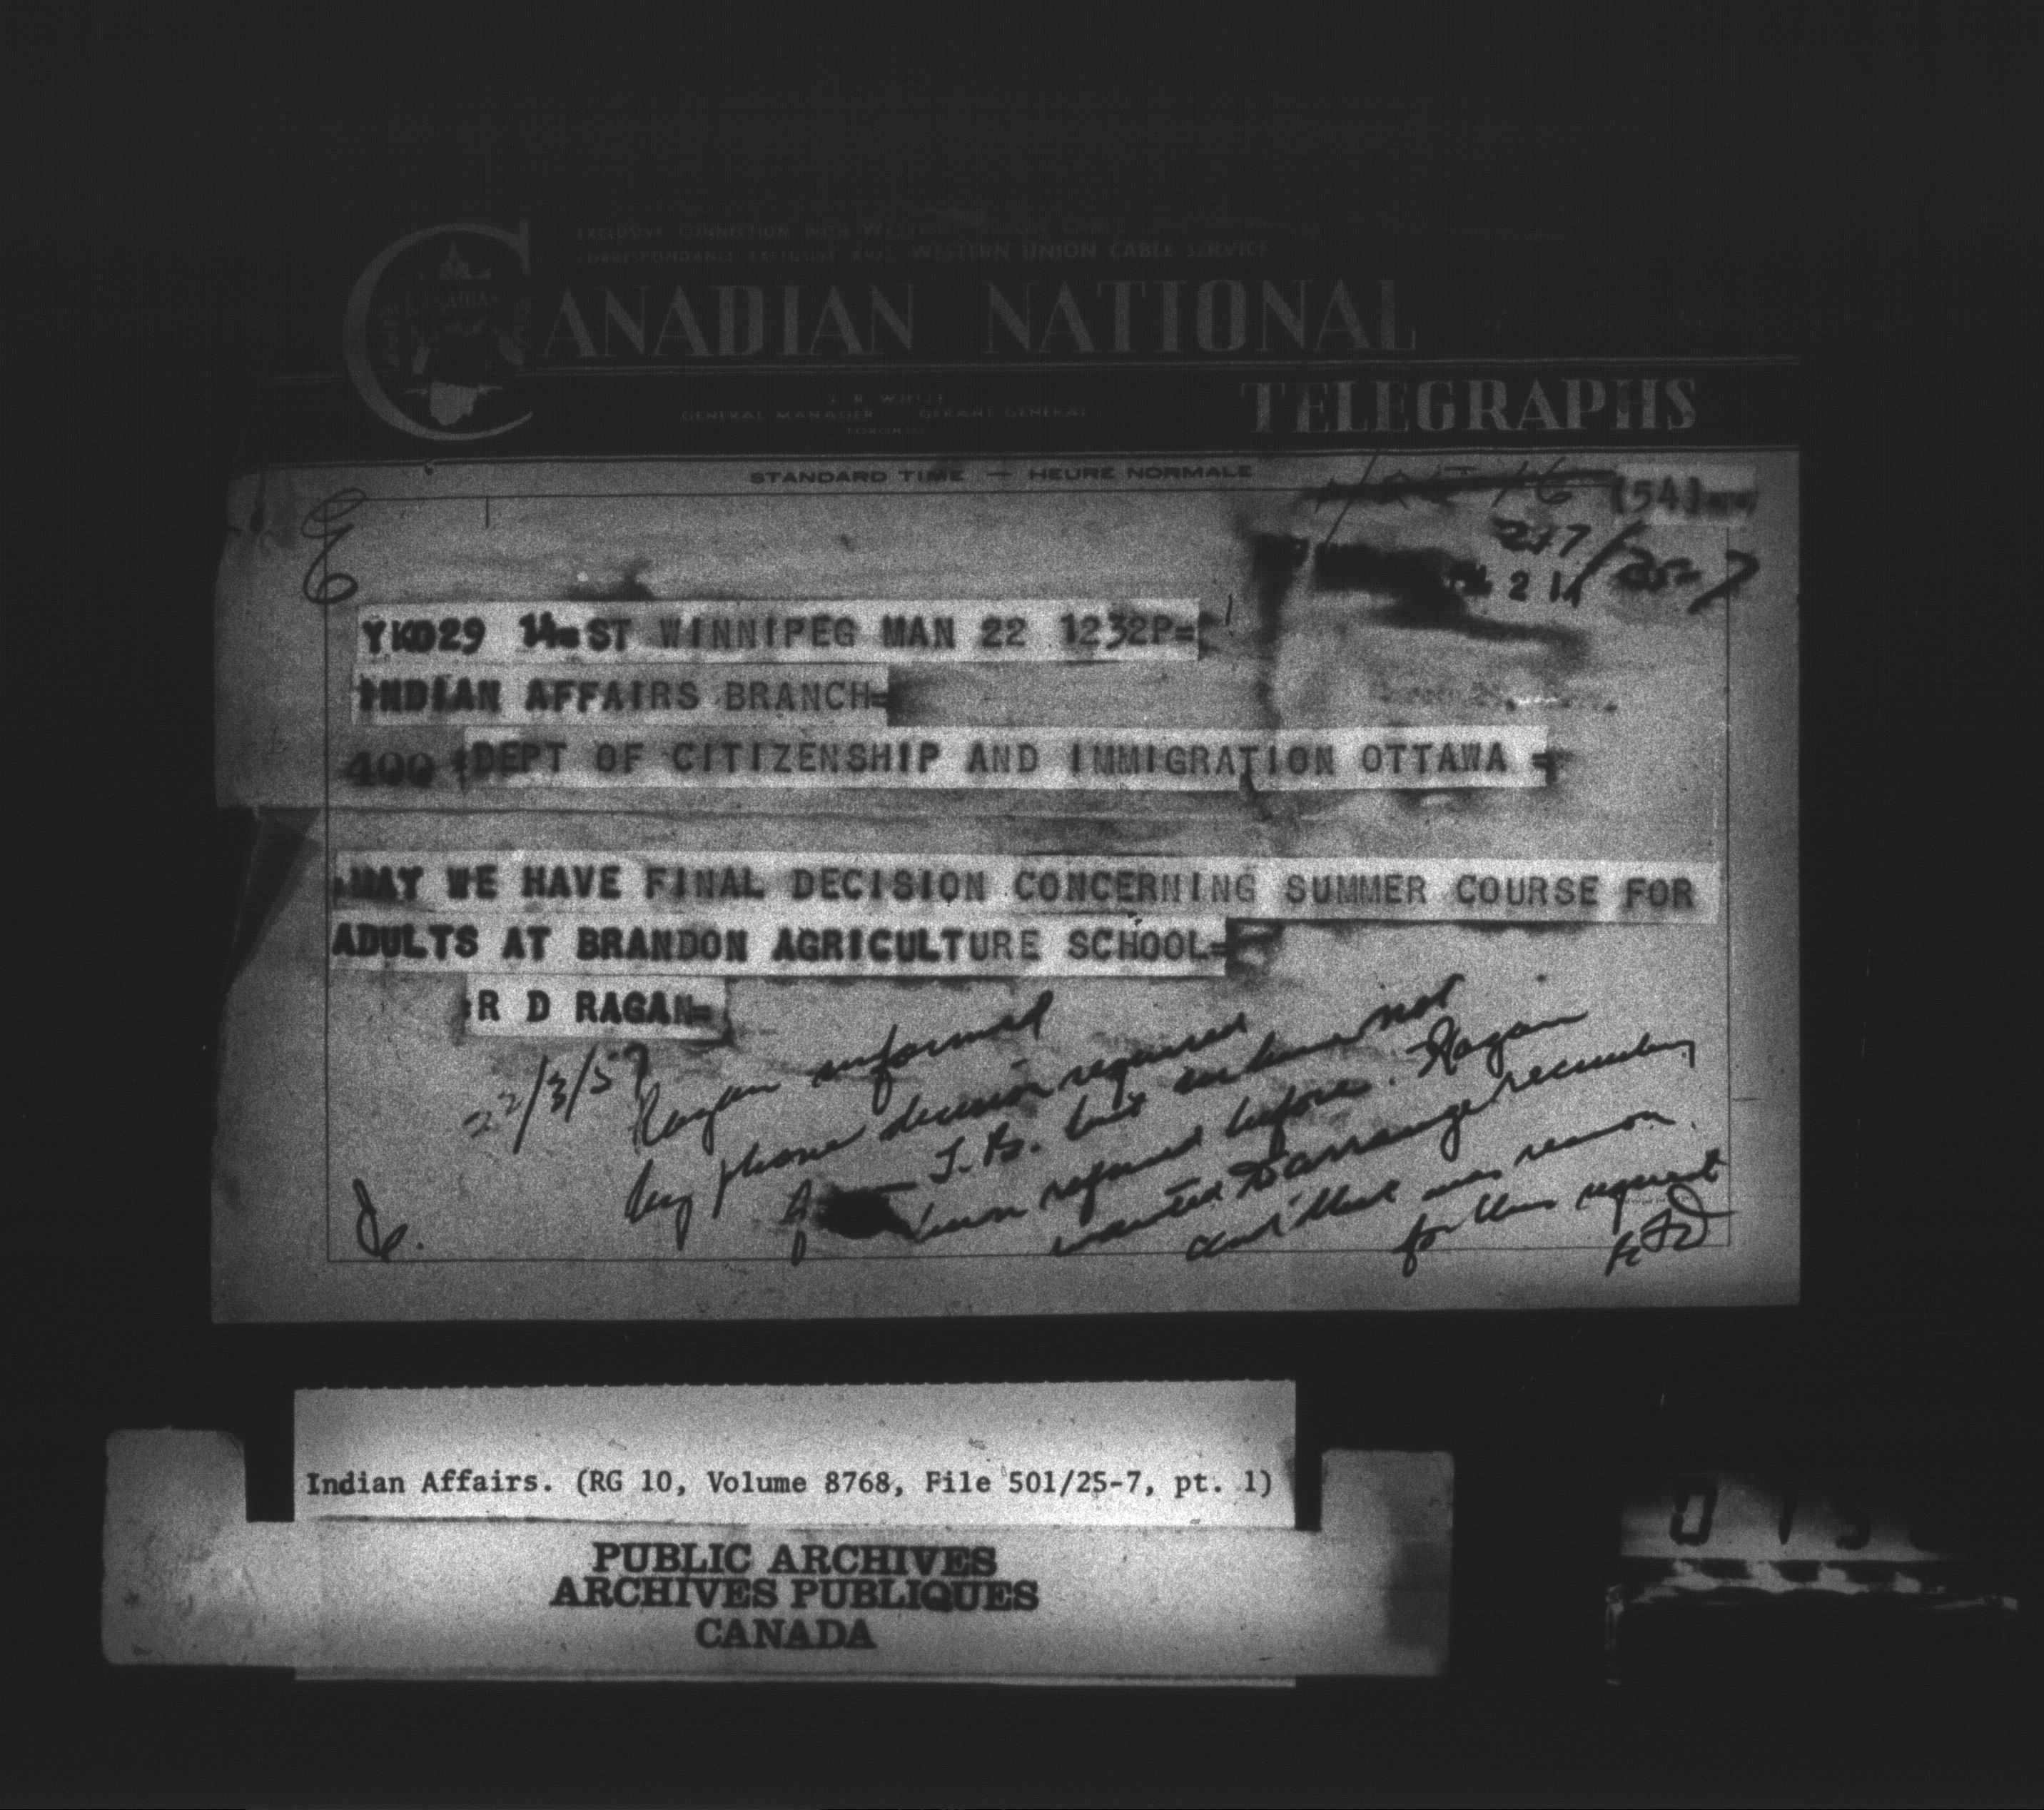 CORRESPONDANCE EXCLUSIVE AVEC WESTERN UNION CABLE SERVICE
CANADIAN NATIONAL
TELEGRAPHS
J. R. WHITE
GENERAL MANAGER GERANT GENERAL
TORONTO
STANDARD TIME — HEURE NORMALE
(54)
YKO29 14=ST WINNIPEG MAN 22 1232P=
INDIAN AFFAIRS BRANCH=
400 DEPT OF CITIZENSHIP AND IMMIGRATION OTTAWA =
MAY WE HAVE FINAL DECISION CONCERNING SUMMER COURSE FOR
ADULTS AT BRANDON AGRICULTURE SCHOOL=
R D RAGAN=
22/3/57
Ragan informed
by phone decision required
T.B. but not
been before. Ragan
wanted to arrange
and that was reason
for this request
Indian Affairs. (RG 10, Volume 8768, File 501/25-7, pt. 1)
PUBLIC ARCHIVES
ARCHIVES PUBLIQUES
CANADA